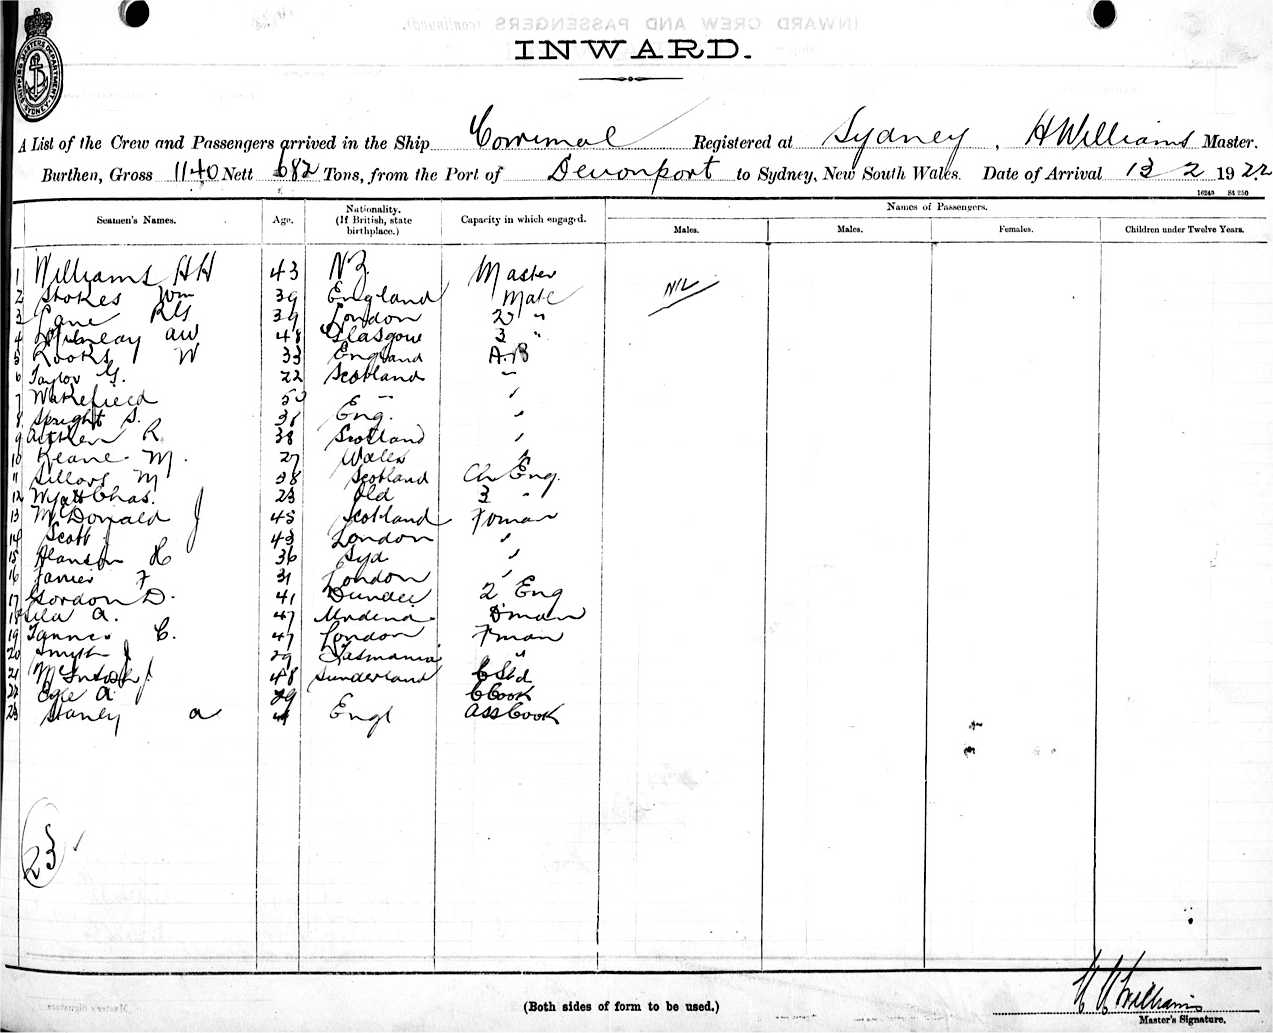 INWARD.
A List of the Crew and Passengers arrived in the Ship Corrimal Registered at Sydney, H Williams Master.
Burthen, Gross 1140 Nett 682 Tons, from the Port of Devonport to Sydney, New South Wales. Date of Arrival 13 2 1922
16249 84 250
Seamen's Names. Age. Nationality. (If British, state birthplace.) Capacity in which engaged. Names of Passengers.
Males. Males. Females. Children under Twelve Years.
1 Williams H H 43 N Z. Master NIL
2 Stokes Wm 39 England Mate
3 Lane 39 London 2 "
4 AW 48 Glasgow 3 "
5 Rooks W 33 England A.B
6 Taylor G. 22 Scotland "
7 Wakefield 50 " "
8 Spright S. 38 Eng. "
9 Aitken R. 38 Scotland "
10 Keane M. 27 Wales "
11 Sillars M 38 Scotland Ch Eng.
12 Wyatt Chas. 23 3 "
13 McDonald J 45 Scotland Foman
14 Scott J 43 London "
15 H 36 Syd "
16 F 31 London "
17 Gordon D. 41 Dundee 2 Eng
18 A. 47 Dman
19 C. 47 London Fman
20 Smyth J 29 Tasmania "
21 McIntosh J 48 Sunderland C Std
22 A 29 C Cook
23 Stanley A Engl Ass Cook
23
(Both sides of form to be used.)
H H Williams
Master's Signature.